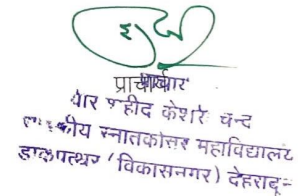 प्राचार्य
वीर शहीद केशरी चन्द
कीय स्नातकोत्तर महाविद्यालय
डाकपत्थर (विकासनगर) देहरादून